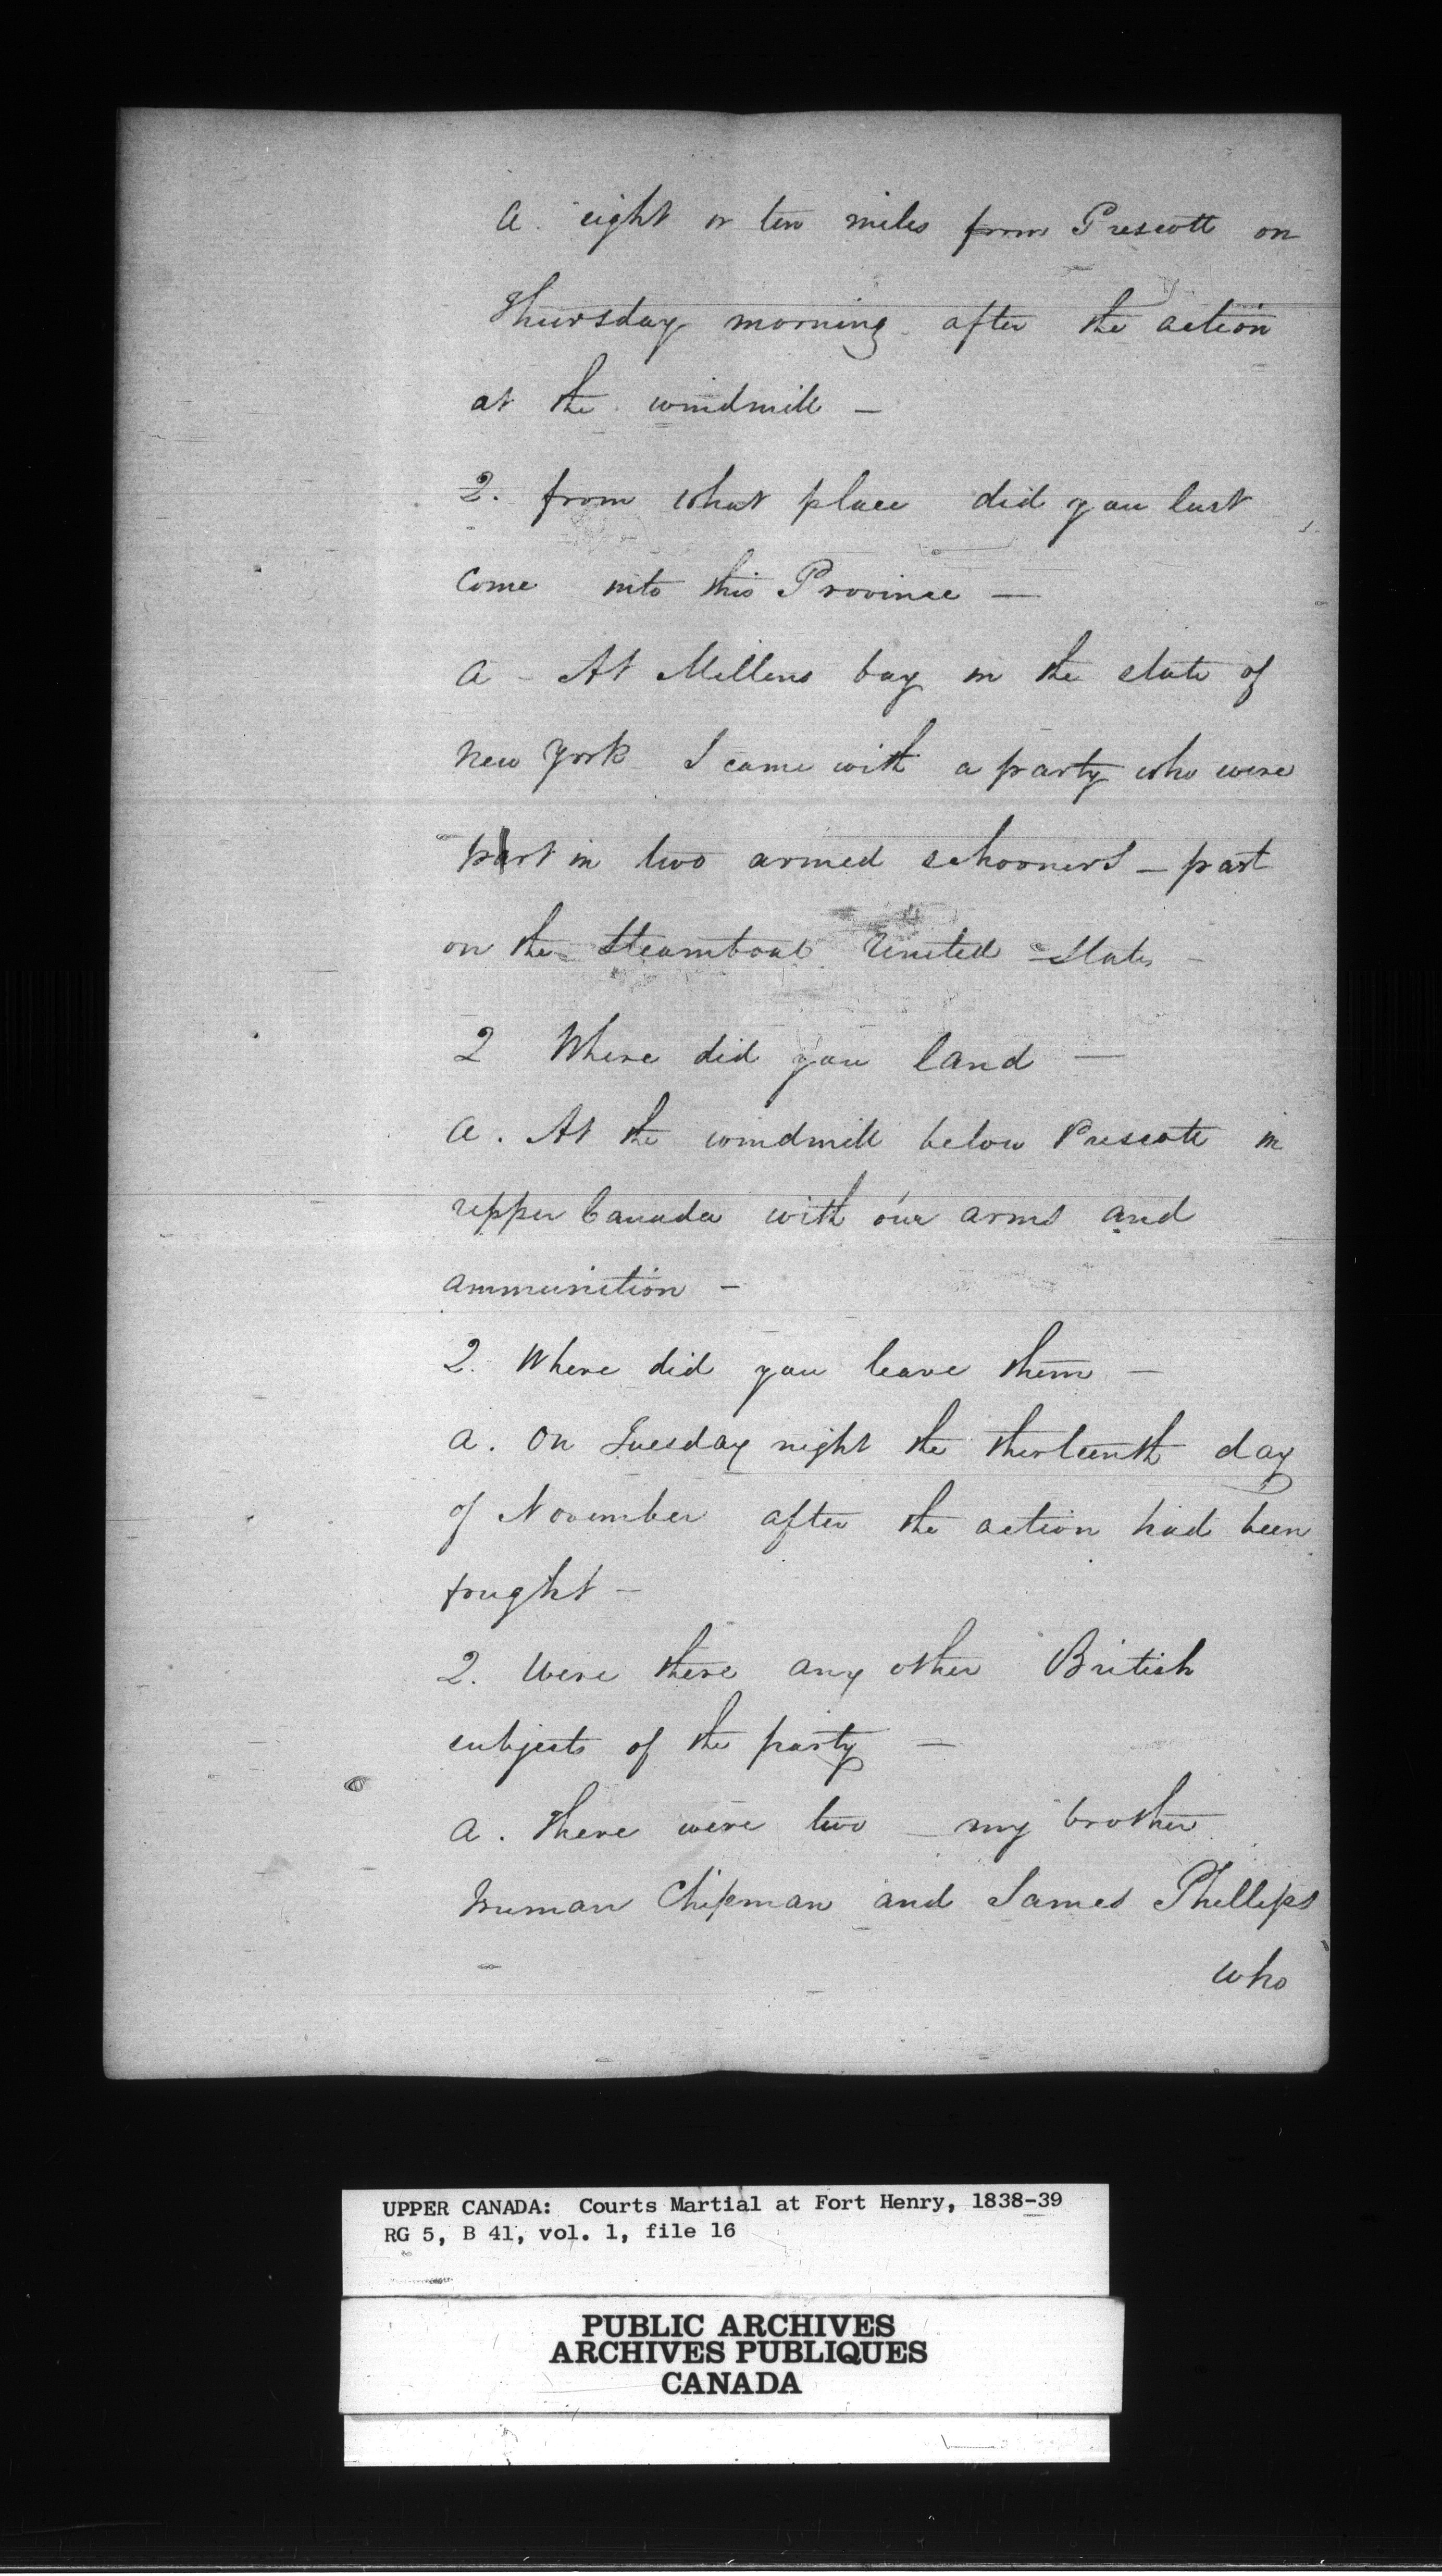 A. eight or ten miles from Prescott on
Thursday morning after the action
at the windmill —
Q. from what place did you last
come into this Province —
A - At Millens bay in the state of
New York I came with a party who were
part in two armed schooners — part
on the Steamboat United States -
Q Where did you land —
A. At the windmill below Prescott in
upper Canada with our arms and
ammunition -
Q. Where did you leave them —
A. On Tuesday night the thirteenth day
of November after the action had been
fought -
Q. Were there any other British
subjects of the party —
A. There were two — my brother
Truman Chipman and James Phillips
who
UPPER CANADA: Courts Martial at Fort Henry, 1838-39
RG 5, B 41, vol. 1, file 16
PUBLIC ARCHIVES
ARCHIVES PUBLIQUES
CANADA